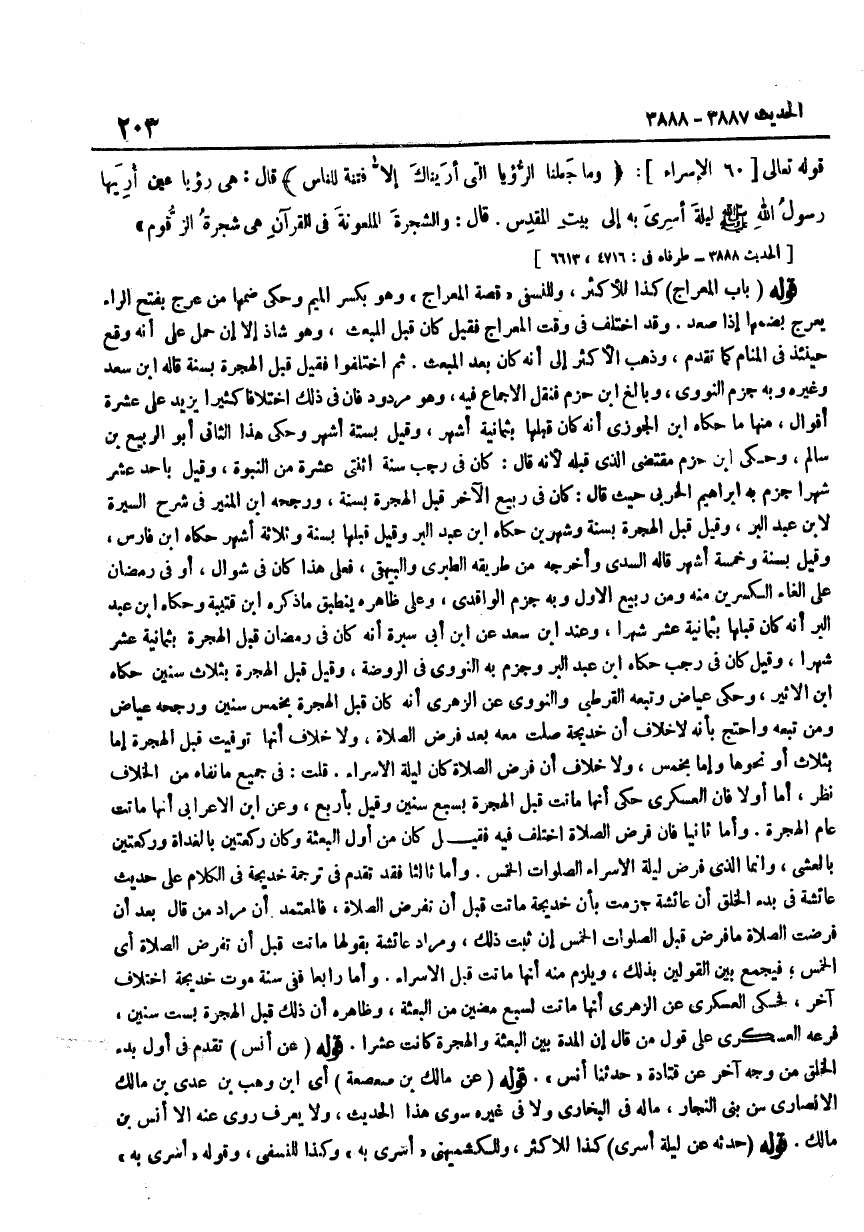 الحديث ٣٨٨٧ - ٣٨٨٨
٢٠٣
قوله تعالى [ ٦٠ الإسراء ] : ﴿ وما جَعلنا الرُّؤيا التى أرَيناكَ إلاّ فتنة للناس ﴾ قال : هى رؤيا عين أُرِيَها
رسولُ اللهِ ﷺ ليلةَ أُسرِىَ به إلى بيتِ المقدِس . قال : والشجرةَ الملعونةَ فى القرآنِ هى شجرةُ الزَّقُّوم »
[ الحديث ٣٨٨٨ - طرفاه فى : ٤٧١٦ ، ٦٦١٣ ]
قوله ( باب المعراج ) كذا للأكثر ، وللنسفى « قصة المعراج ، وهو بكسر الميم وحكى ضمها من عرج بفتح الراء
يعرج بضمها إذا صعد . وقد اختلف فى وقت المعراج فقيل كان قبل المبعث ، وهو شاذ إلا إن حمل على أنه وقع
حينئذ فى المنام كما تقدم ، وذهب الأكثر إلى أنه كان بعد المبعث . ثم اختلفوا فقيل قبل الهجرة بسنة قاله ابن سعد
وغيره وبه جزم النووى ، وبالغ ابن حزم فنقل الاجماع فيه ، وهو مردود فان فى ذلك اختلافا كثيرا يزيد على عشرة
أقوال ، منها ما حكاه ابن الجوزى أنه كان قبلها بثمانية أشهر ، وقيل بستة أشهر وحكى هذا الثانى أبو الربيع بن
سالم ، وحكى ابن حزم مقتضى الذى قبله لأنه قال : كان فى رجب سنة اثنتى عشرة من النبوة ، وقيل باحد عشر
شهرا جزم به ابراهيم الحربى حيث قال : كان فى ربيع الآخر قبل الهجرة بسنة ، ورجحه ابن المنير فى شرح السيرة
لابن عبد البر ، وقيل قبل الهجرة بسنة وشهرين حكاه ابن عبد البر وقيل قبلها بسنة وثلاثة أشهر حكاه ابن فارس ،
وقيل بسنة وخمسة أشهر قاله السدى وأخرجه من طريقه الطبرى والبيهقى ، فعلى هذا كان فى شوال ، أو فى رمضان
على الغاء الكسرين منه ومن ربيع الاول وبه جزم الواقدى ، وعلى ظاهره ينطبق ماذكره ابن قتيبة وحكاه ابن عبد
البر أنه كان قبلها بثمانية عشر شهرا ، وعند ابن سعد عن ابن أبى سبرة أنه كان فى رمضان قبل الهجرة بثمانية عشر
شهرا ، وقيل كان فى رجب حكاه ابن عبد البر وجزم به النووى فى الروضة ، وقيل قبل الهجرة بثلاث سنين حكاه
ابن الاثير ، وحكى عياض وتبعه القرطبى والنووى عن الزهرى أنه كان قبل الهجرة بخمس سنين ورجحه عياض
ومن تبعه واحتج بأنه لاخلاف أن خديجة صلت معه بعد فرض الصلاة ، ولا خلاف أنها توفيت قبل الهجرة إما
بثلاث أو نحوها وإما بخمس ، ولا خلاف أن فرض الصلاة كان ليلة الاسراء . قلت : فى جميع مانفاه من الخلاف
نظر ، أما أولا فان العسكرى حكى أنها ماتت قبل الهجرة بسبع سنين وقيل بأربع ، وعن ابن الاعرابى أنها ماتت
عام الهجرة . وأما ثانيا فان فرض الصلاة اختلف فيه فقيـــل كان من أول البعثة وكان ركعتين بالغداة وركعتين
بالعشى ، وانما الذى فرض ليلة الاسراء الصلوات الخمس . وأما ثالثا فقد تقدم فى ترجمة خديجة فى الكلام على حديث
عائشة فى بدء الخلق أن عائشة جزمت بأن خديجة ماتت قبل أن تفرض الصلاة ، فالمعتمد أن مراد من قال بعد أن
فرضت الصلاة مافرض قبل الصلوات الخمس إن ثبت ذلك ، ومراد عائشة بقولها ماتت قبل أن تفرض الصلاة أى
الخمس ؛ فيجمع بين القولين بذلك ، ويلزم منه أنها ماتت قبل الاسراء . وأما رابعا ففى سنة موت خديجة اختلاف
آخر ، فحكى العسكرى عن الزهرى أنها ماتت لسبع مضين من البعثة ، وظاهره أن ذلك قبل الهجرة بست سنين ،
فرعه العسكرى على قول من قال إن المدة بين البعثة والهجرة كانت عشرا . قوله ( عن أنس ) تقدم فى أول بدء
الخلق من وجه آخر عن قتادة « حدثنا أنس » . قوله ( عن مالك بن صعصعة ) أى ابن وهب بن عدى بن مالك
الانصارى من بنى النجار ، ماله فى البخارى ولا فى غيره سوى هذا الحديث ، ولا يعرف روى عنه الا أنس بن
مالك . قوله ( حدثه عن ليلة أسرى ) كذا للاكثر ، وللكشميهنى « أسرى به » وكذا للنسفى ، وقوله « أسرى به »